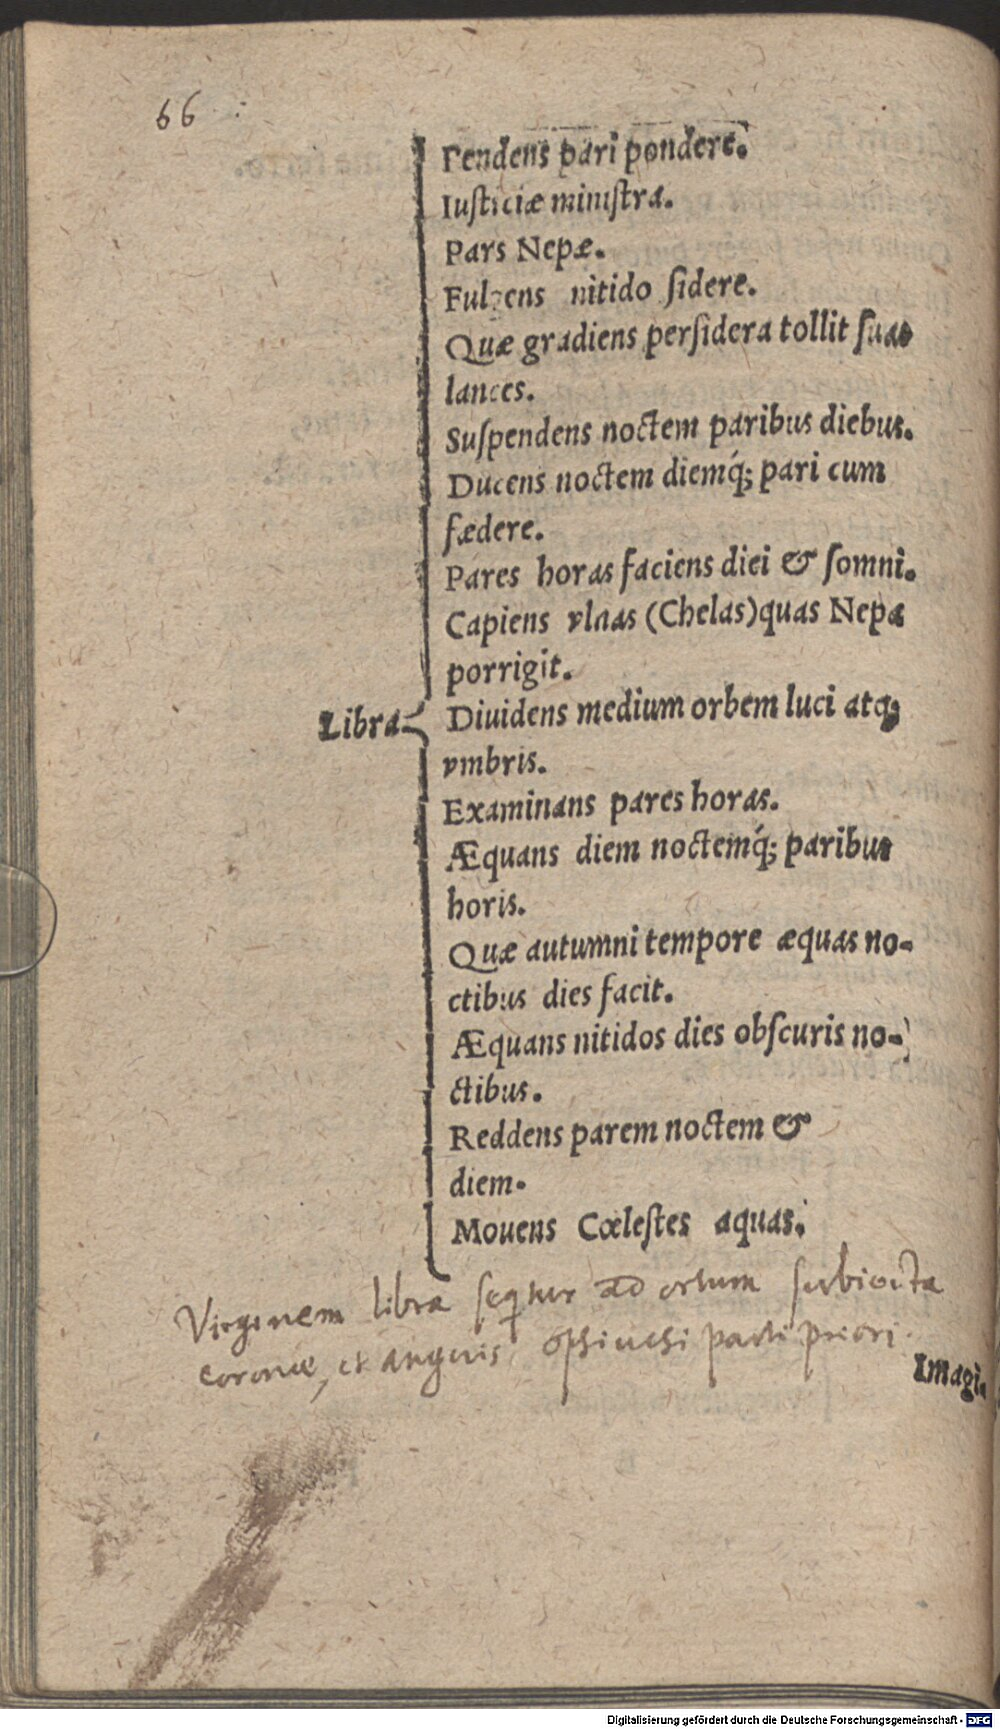 66
Pendens pari pondere.
Iusticiæ ministra.
Pars Nepæ.
Fulgens nitido sidere.
Quæ gradiens persidera tollit suas
lances.
Suspendens noctem paribus diebus.
Ducens noctem diemq́; pari cum
fædere.
Pares horas faciens diei & somni.
Capiens vlnas (Chelas) quas Nepa
porrigit.
Libra Diuidens medium orbem luci atq;
vmbris.
Examinans pares horas.
Æquans diem noctemq́; paribus
horis.
Quæ autumni tempore æquas no-
ctibus dies facit.
Æquans nitidos dies obscuris no-
ctibus.
Reddens parem noctem &
diem.
Mouens Cœlestes aquas.
Virginem libra sequitur ad ortum subiecta
coronæ, et anguis, ophiuchi parti priori.
Imagi.
Digitalisierung gefördert durch die Deutsche Forschungsgemeinschaft - DFG